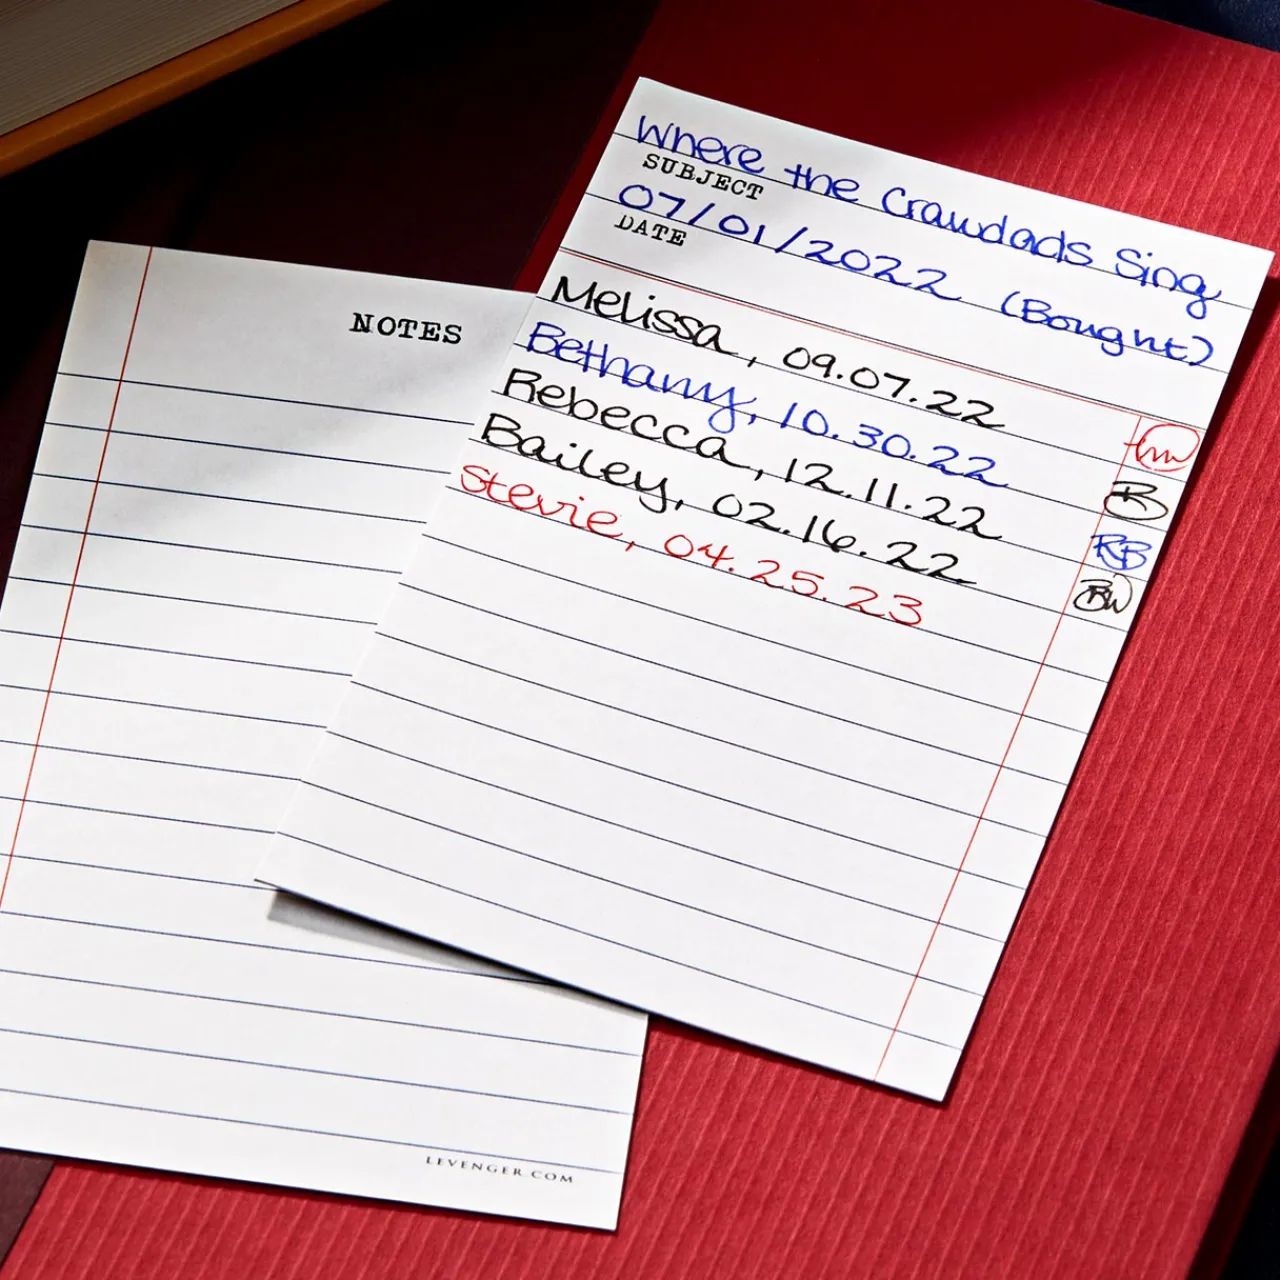 Where the Crawdads Sing
SUBJECT
07/01/2022 (Bought)
DATE
Melissa, 09.07.22
Bethany, 10.30.22
Rebecca, 12.11.22 RB
Bailey, 02.16.22 BW
Stevie, 04.25.23
NOTES
LEVENGER.COM